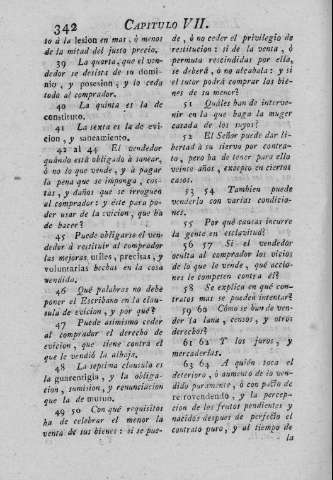 342 CAPITULO VII.
to á la lesion en mas, ó menos
de la mitad del justo precio.
39 La quarta, que el ven-
dedor se desista de su domi-
nio, y posesion, y lo ceda
todo al comprador.
40 La quinta es la de
constituto.
41 La sexta es la de evi-
cion, y saneamiento.
42 al 44 El vendedor
quándo está obligado á sanear,
ó no lo que vende, y á pagar
la pena que se imponga, cos-
tas, y daños que se irroguen
al comprador: y éste para po-
der usar de la eviccion, que ha
de hacer?
45 Puede obligarse el ven-
dedor á restituir al comprador
las mejoras utiles, precisas, y
voluntarias hechas en la cosa
vendida.
46 Qué palabras no debe
poner el Escribano en la clau-
sula de evicion, y por qué?
47 Puede asimismo ceder
al comprador el derecho de
evicion, que tiene contra el
que le vendió la alhaja.
48 La septima clausula es
la guarentigia, y la obliga-
cion, sumision, y renunciacion
que la de mutuo.
49 50 Con qué requisitos
ha de celebrar el menor la
venta de sus bienes: si se pue-
de, ó no ceder el privilegio de
restitucion: si de la venta, ó
permuta rescindidas por ella,
se deberá, ó no alcabala: y si
el tutor podrá comprar los bie-
nes de su menor?
51 Quáles han de interve-
nir en la que haga la muger
casada de los suyos?
52 El Señor puede dar li-
bertad à su siervo por contra-
to, pero ha de tener para ello
veinte años, excepto en ciertos
casos.
53 54 Tambien puede
venderlo con varias condicio-
nes.
55 Por qué causas incurre
la gente en esclavitud?
56 57 Si el vendedor
oculta al comprador los vicios
de lo que le vende, qué accio-
nes le competen contra él?
58 Se explica en qué con-
tratos mas se pueden intentar?
59 60 Cómo se han de ven-
der la lana, censos, y otros
derechos?
61 62 Y los juros, y
mercaderías.
63 64 A quién toca el
deterioro, ó aumento de lo ven-
dido puramente, ó con pacto de
retrovendendo, y la percep-
cion de los frutos pendientes y
nacidos despues de perfecto el
contrato puro, y al tiempo de
la